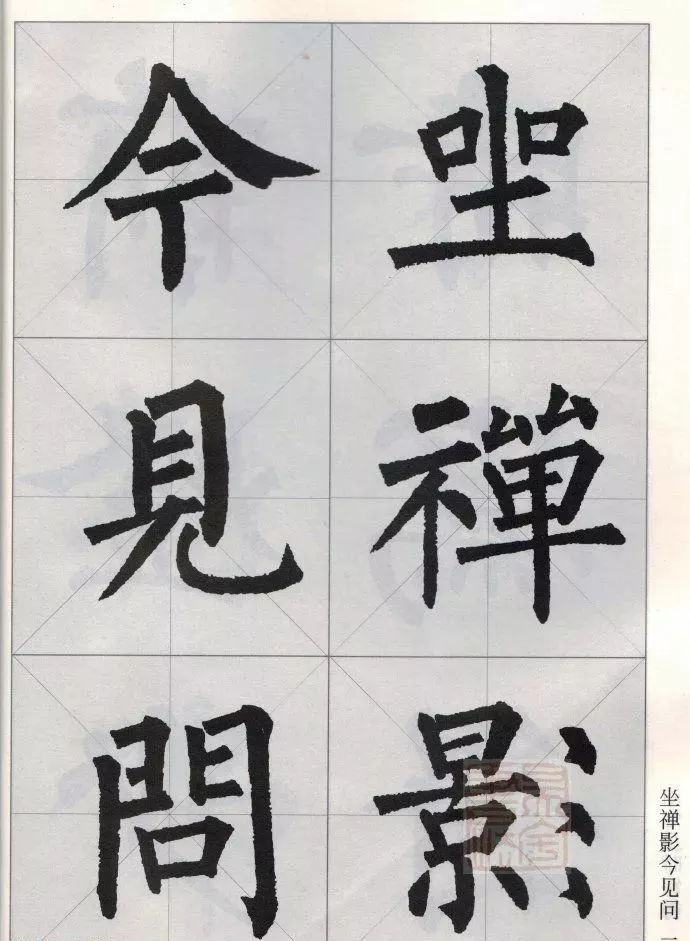 坐禪影
今見問
坐禅影今见问 一